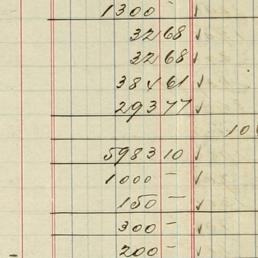 1300 –
32 68
32 68
384 61
293 77
10
5983 10
1000 –
150 –
300 –
200 –